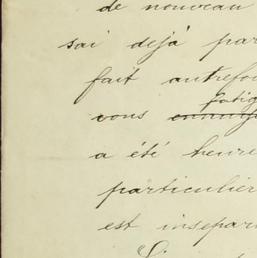 de nouveau
sai déjà par
fait autrefo
fatig
vous
a été heure
particulier
est insepar